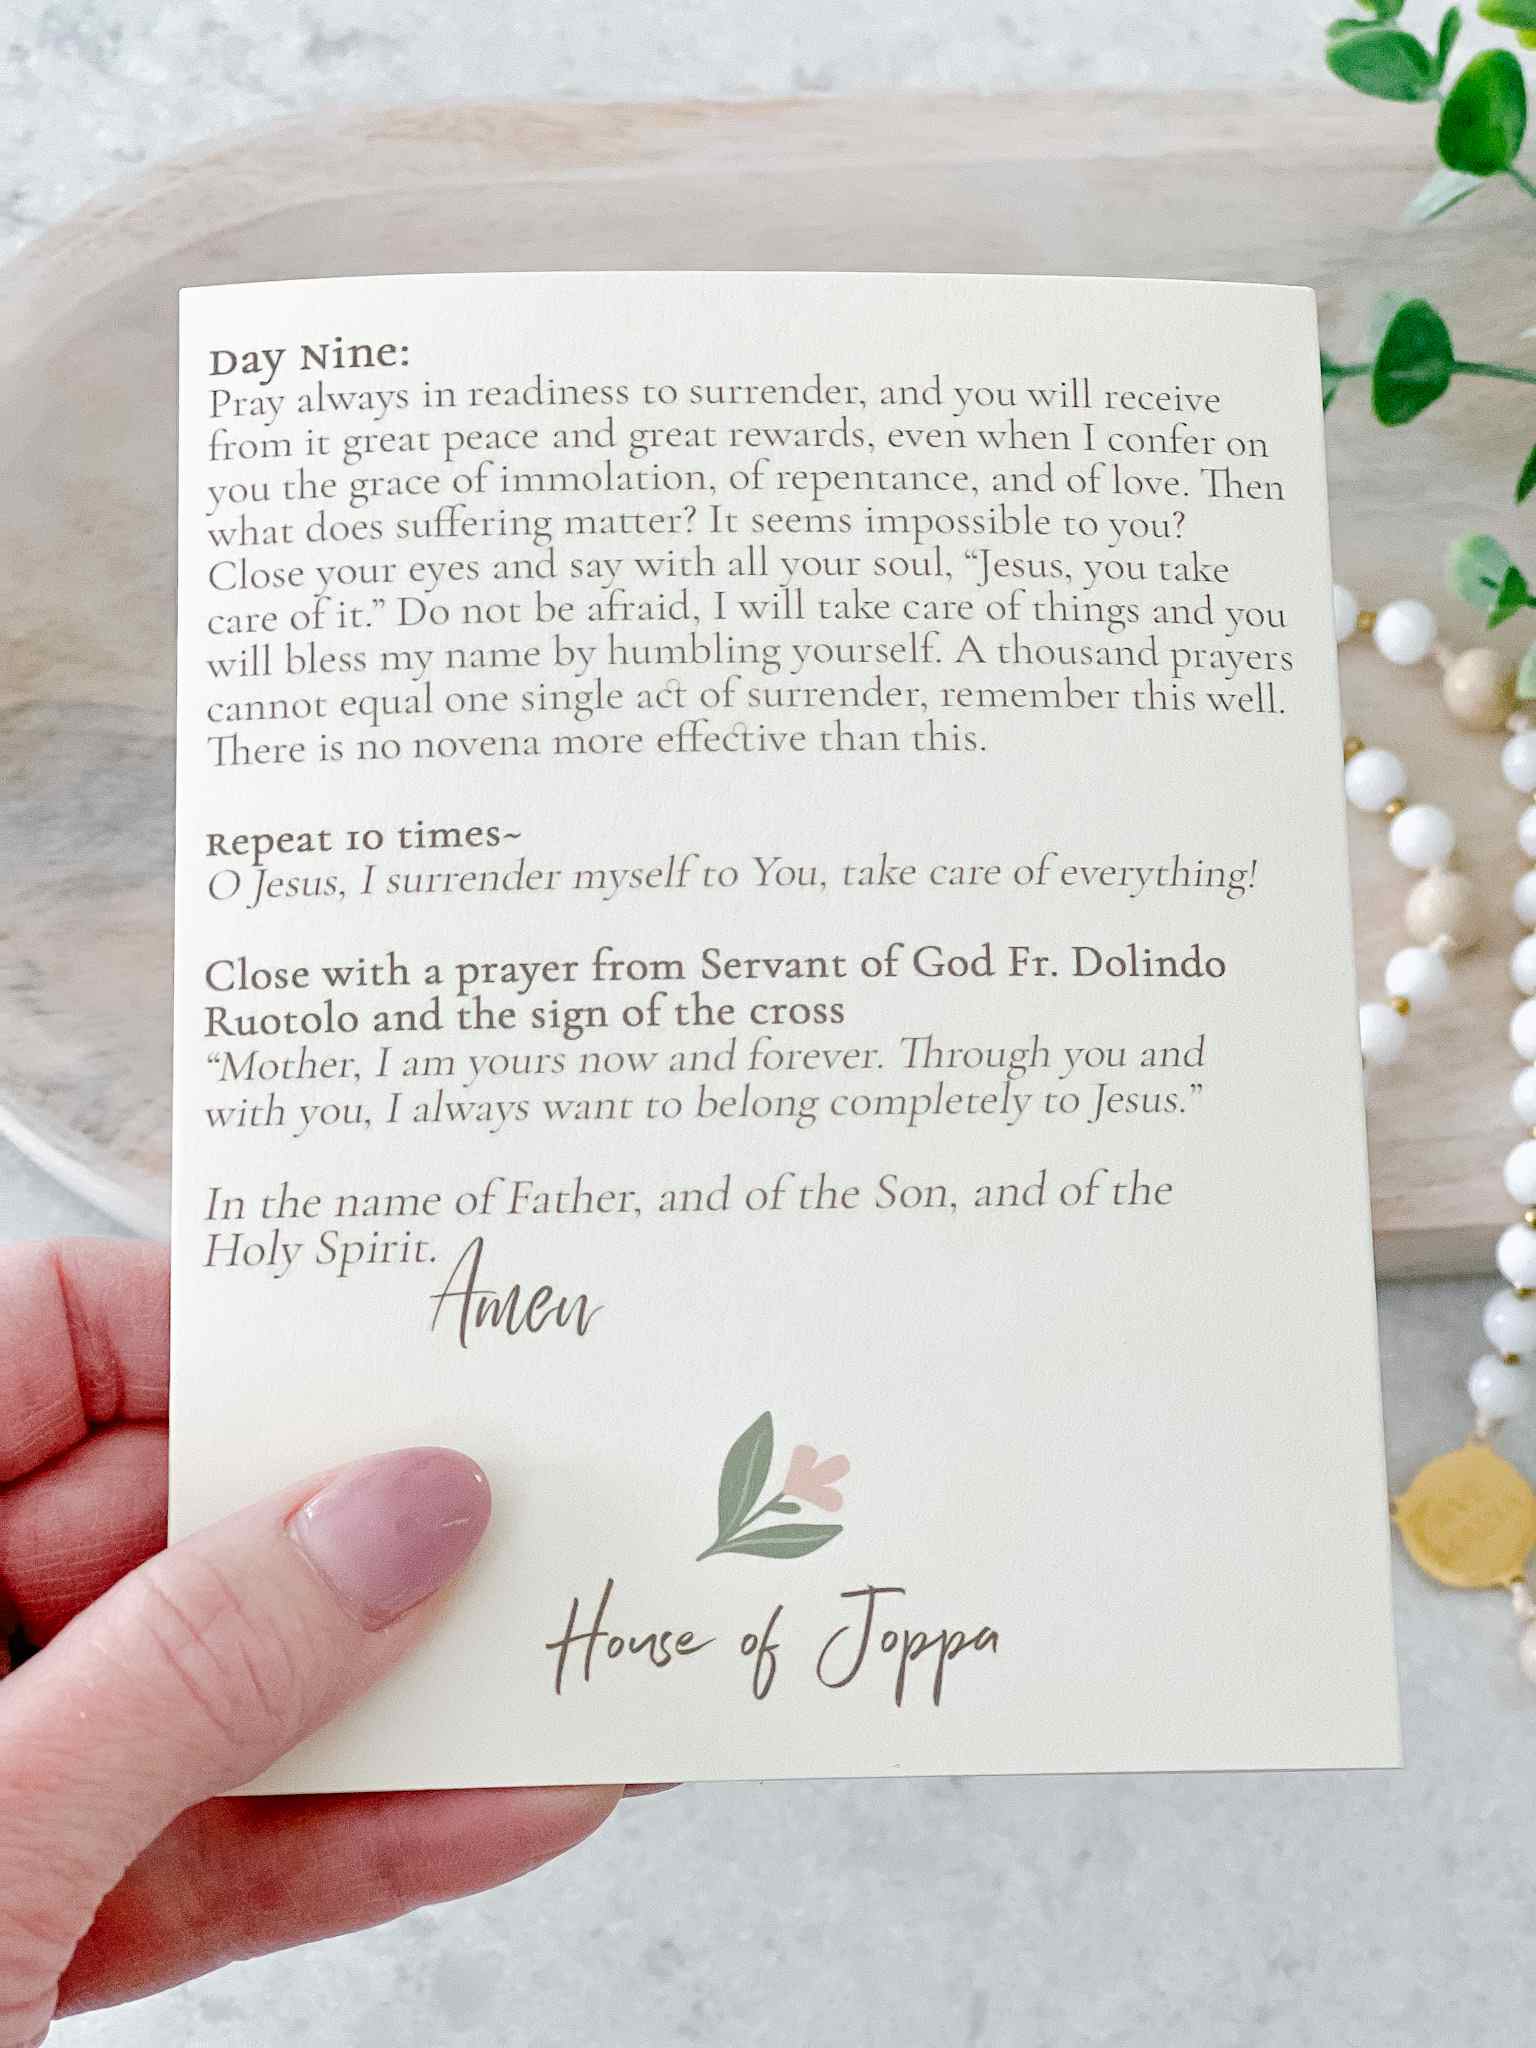 Day Nine:
Pray always in readiness to surrender, and you will receive
from it great peace and great rewards, even when I confer on
you the grace of immolation, of repentance, and of love. Then
what does suffering matter? It seems impossible to you?
Close your eyes and say with all your soul, “Jesus, you take
care of it.” Do not be afraid, I will take care of things and you
will bless my name by humbling yourself. A thousand prayers
cannot equal one single act of surrender, remember this well.
There is no novena more effective than this.
Repeat 10 times~
O Jesus, I surrender myself to You, take care of everything!
Close with a prayer from Servant of God Fr. Dolindo
Ruotolo and the sign of the cross
“Mother, I am yours now and forever. Through you and
with you, I always want to belong completely to Jesus.”
In the name of Father, and of the Son, and of the
Holy Spirit.
Amen
House of Joppa